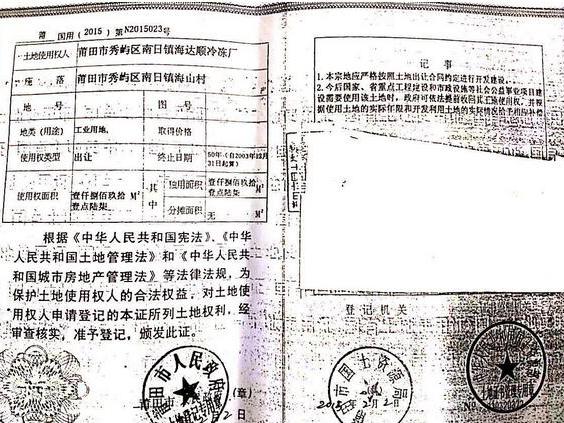 莆 国用 ( 2015 ) 第 N2015023号
土地使用权人 莆田市秀屿区南日镇海达顺冷冻厂
座 落 莆田市秀屿区南日镇海山村
地 号 图 号
地类 (用途) 工业用地 取得价格
使用权类型 出让 终止日期 50年 (自2003年12月
31日起算)
使用权面积 壹仟捌佰玖拾 M²
壹点陆柒 其中 独用面积 壹仟捌佰玖拾 M²
壹点陆柒
分摊面积 无 M²
根据《中华人民共和国宪法》、《中华
人民共和国土地管理法》和《中华人民共
和国城市房地产管理法》等法律法规，为
保护土地使用权人的合法权益，对土地使
用权人申请登记的本证所列土地权利，经
审查核实，准予登记，颁发此证。
莆田市人民政府
土地登记专用
莆田市
(章)
记 事
1. 本宗地应严格按照土地出让合同约定进行开发建设。
2. 今后国家、省重点工程建设和市政设施等社会公益事业项目建
设需要使用该土地时，政府可依法提前收回其土地使用权，并根
据使用土地的实际年限和开发利用土地的实际情况给予相应补偿
登 记 机 关
国土资源局
2015 2 2